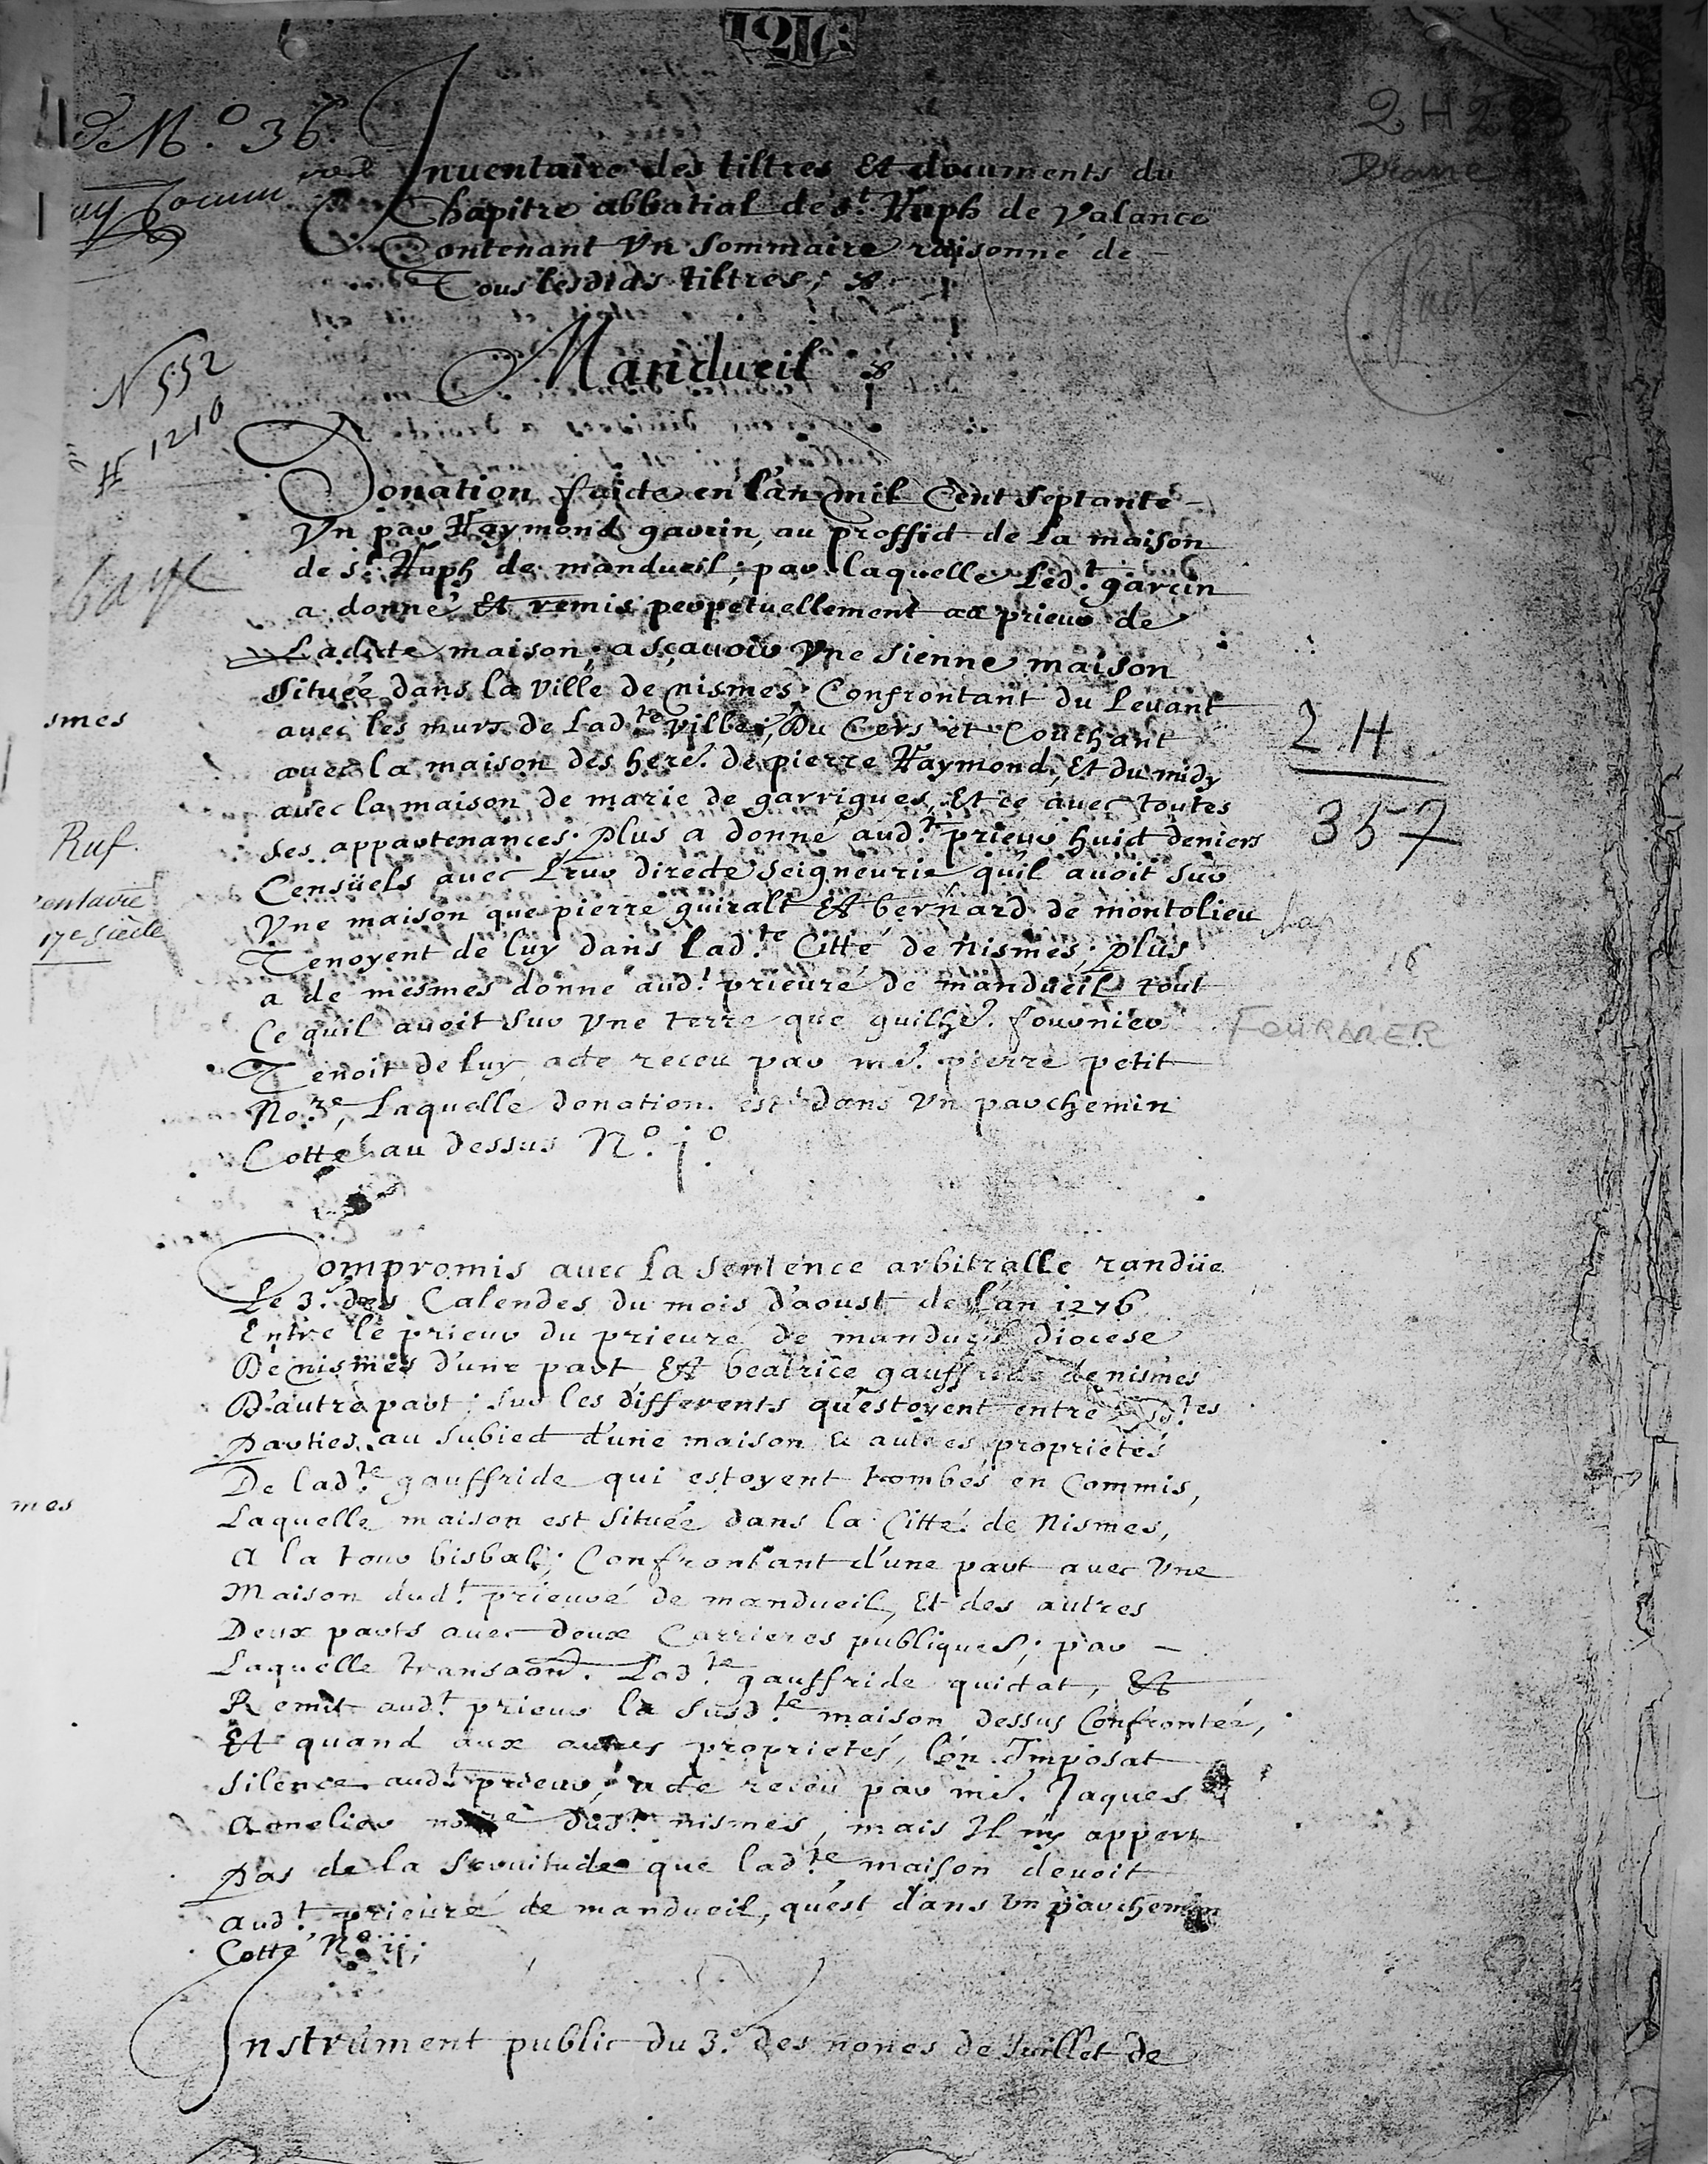 1216
2 H 283
N.º 36.
Inuentaire des tiltres Et documents du
Chapitre abbatial de s.t Ruph de Valance
Contenant Vn Sommaire raisonné de
Tous lesdids tiltres;
Mandueil
N 552
H 1210
Donation faicte en l'an mil Cent Septante
Vn par Raymond garcin, au proffid de la maison
de s.t Ruph de mandueil; par laquelle Led.t garcin
a donné Et remis perpetuellement au prieur de
Ladite maison, a sçauoir Vne sienne maison
Située dans la ville de nismes Confrontant du Leuant
smes
auec les murs de Lad.te ville, Du Cers et Couchant
2 H
auec la maison des here.s de pierre Raymond, Et du midy
auec la maison de marie de garrigues, Et ce auec toutes
357
Ruf.
ses appartenances, plus a donné aud.t prieur huict deniers
Censüels auec Leur directe Seigneurie qu'il auoit Sur
entaire
Vne maison que pierre guiralt Et bernard de montolieu
17e siècle
Tenoyent de luy dans Lad.te Citté de Nismes; plus
16
a de mesmes donné aud.t prieuré de mandueil tout
Ce quil auoit Sur Vne terre que guilhe. fournier
FOURNIER
Tenoit de luy acte receu par me. pierre petit
No.re, Laquelle donation est dans Vn parchemin
Cotté au dessus N.º j.º
Compromis auec La Sentence arbitralle randüe
Le 3.e des Calendes du mois d'aoust de l'an 1276
Entre le prieur du prieuré de mandueil diocese
De nismes d'une part Et beatrice gauffride de nismes
D'autre part; sur les differents qu'estoyent entre les
parties au Subiect d'une maison & autres proprietés
De lad.te gauffride qui estoyent tombés en Commis,
mes
Laquelle maison est Située dans la Citté de Nismes,
A la tour bisbal; Confrontant d'une part auec Vne
Maison dud.t prieuré de mandueil, Et des autres
Deux parts auec deux Carrieres publiques; par
Laquelle transaon. Lad.te gauffride quictat, Et
Remit aud.t prieur la susd.te maison dessus Confrontée,
Et quand aux autres proprietés, l'on Imposat
Silence aud.t prieur, acte receu par me. Jaques
Amelier no.re dud.t nismes, mais Il ny appert
pas de la Seruitude que lad.te maison deuoit
aud.t prieuré de mandueil, qu'est dans Vn parchemin
Cotté N.º ij;
Instrument public du 3.e des nones de Juillet de